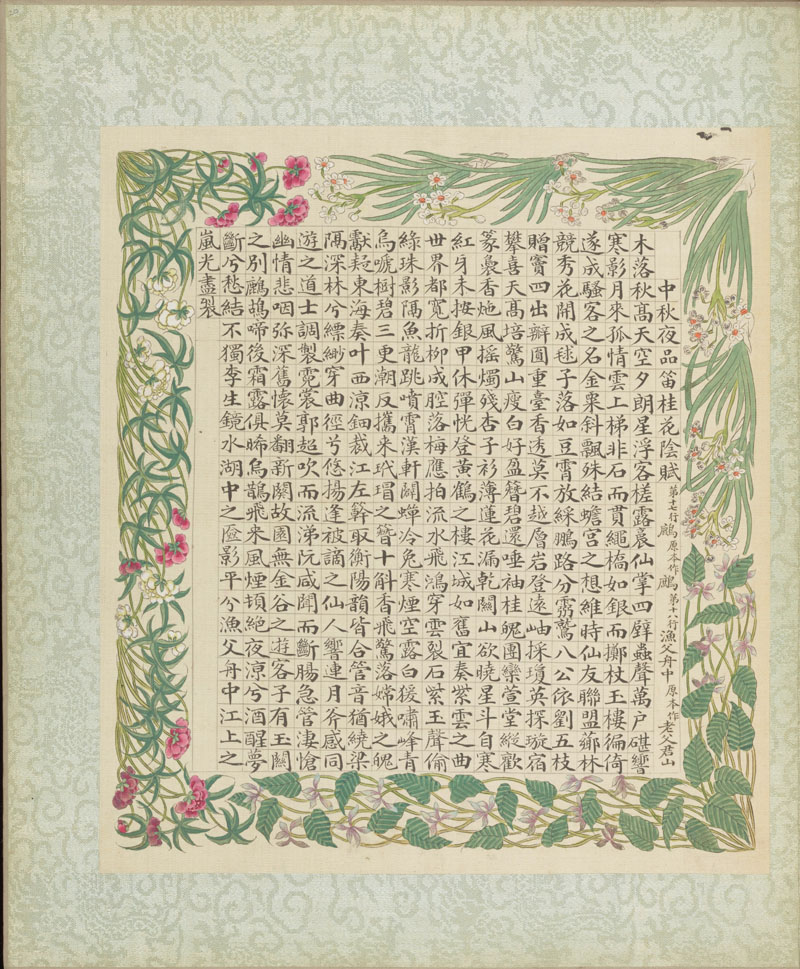 中秋夜品笛桂花陰賦 第十七行鷓原本作鷓第十八行漁父舟中原本作老父君山
木落秋髙天空夕朗星浮客槎露裛仙掌四壁蟲聲萬戸碪響
寒影月來孤情雲上梯非石而貫繩橋如銀而擲杖玉樓徧倚
遂成騷客之名金粟斜飄殊結蟾宮之想維時仙友聯盟薌林
競秀花開成毬子落如豆霄放綵鵬路分鷔八公依劉五枝
贈竇四出辧圎重臺香透莫不越岩登遠岫採瓊英探璇宿
攀喜天髙培驚山瘦白好盈簪碧還唾袖桂魄圍欒萱堂縱歡
篆裊香灺風揺燭殘杏子衫薄蓮花漏乾闗山欲曉星斗自寒
紅牙未按銀甲休彈恍登黄鶴之樓江城如舊宜奏紫雲之曲
世界都寛折柳成腔落梅應拍流水飛鴻穿雲裂石紫玉聲偷
綠珠影隔魚龍跳噴霄漢軒闢蟬冷兔寒煙空露白猨嘯峰青
烏嗁樹碧三更潮反攜来玳瑁之簪十斛香飛驚落嫦娥之魄
獻東海奏叶西涼鈿裁江左簳取衡陽韻皆合管音猶繞梁
隔深林兮縹緲穿曲徑兮悠揚逢被謫之仙人響連月斧感同
遊之道士調製霓裳郭超吹而流涕阮咸聞而斷腸急管淒愴
幽情悲咽弥深舊懐莫翻新闋故園無金谷之遊客子有玉關
之別鷓鴣啼後霜露俱晞烏鵲飛来風煙頓絶夜凉兮酒醒夢
斷兮愁結不獨李生鏡水湖中之匳影平兮漁父舟中江上之
嵐光盡裂